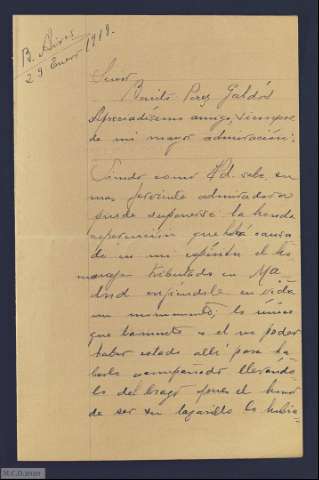 B. Aires
29 Enero 1919.
Señor
Benito Perez Galdós
Apreciadísimo amigo, siempre
de mi mayor admiración:
Siendo como Vd. sabe, su
mas ferviente admiradora
puede suponerse la honda
repercusión que há causa
do en mi espíritu el ho
menaje tributado en Ma-
drid erijiendole en vida
un monumento; lo único
que lamento es el no poder
haber estado allí para ha
berlo acompañado llevándo
lo del brazo pues el honor
de ser su lazarillo lo hubie-
M.C.D. 2022